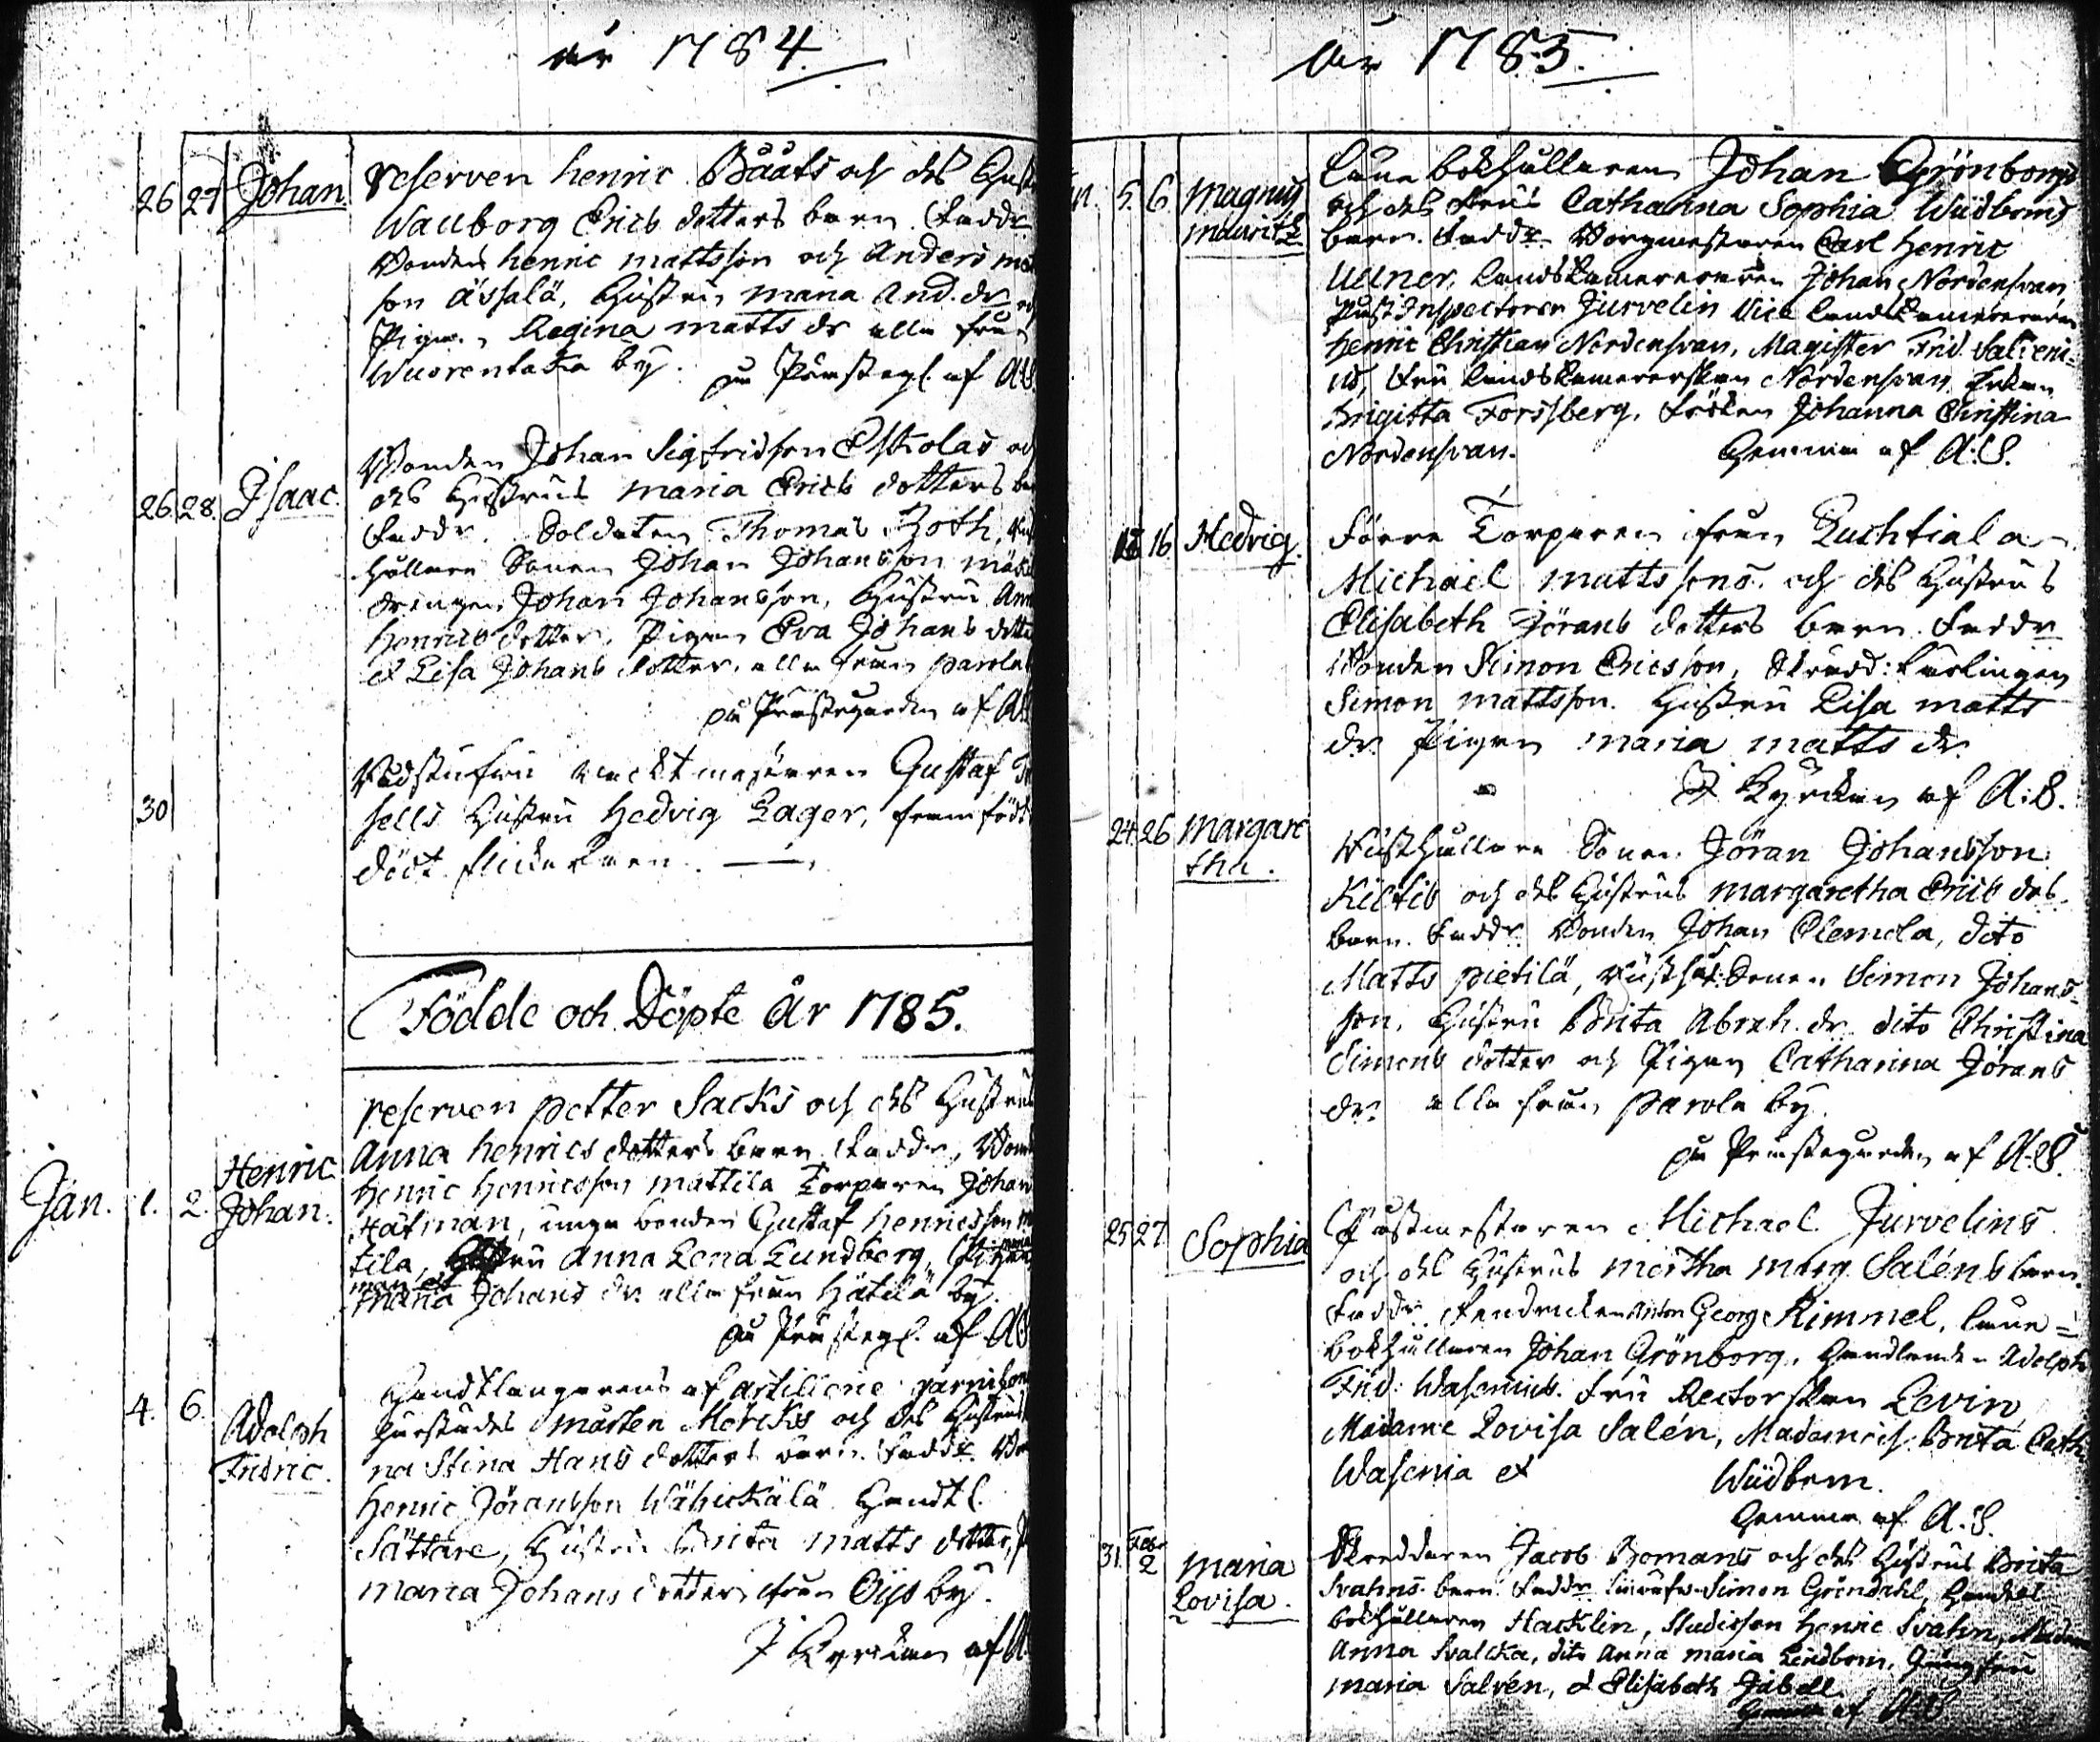 år 1784.
26 27 Johan. reserven henric Bååts och des Hust
Wallborg Erics dotters barn. Faddr
Bonden henric mattsson och Anders mat
son Åssalä, Hustrun maria And. dr
Pigan Regina matts dr alla från
Wuorentaka by. på Prästeg. af A.
26. 28. Isaac. Bonden Johan Sigfridsson Eskolas och
des Hustrus maria Erics dotters
Faddr. Soldaten Thomas Roth,
hållare Sonen Johan Johansson
drengen Johan Johansson, Hustru Ann
Henrics dotter, Pigan Eva Johans dotte
et Lisa Johans dotter, alla från parola
på Prästegården af A
30 Vadstufvu vacktmästaren Gustaf
sells Hustru Hedvig Lager, framfödt
dödt flickebarn.
Födde och Döpte År 1785.
Jan. 1. 2. Henric Johan. reserven petter Sacks och des Hustrus
Anna henrics dotters barn. Faddr, Bond
henric henricsson mattila Torparen Johan
Hätman, unga bonden Gustaf henricsson
tila, Hustru Anna Lena Lundberg, Pigan
maria Johans dr alla från Hätilä by.
på Prästeg. af A
4. 6. Adolph Fridric. Handtlangarens af Artillerie garnison
härstädes Mårten Mörcks och des Hustrus
na Stina Hans dotters barn. Faddr. Bon
Henric Jöransson Wähickälä Handtl.
Sättare, Hustru Brita matts dotter,
maria Johans dotter från Öijs by.
I Kyrckan af A
år 1785.
5. 6. Magnus mauritz Läne bokhållaren Johan Grönborgs
och des Frus Catharina Sophia Widboms
barn. Faddr. Borgmestaren Carl Henric
Ullner, Landskamereraren Johan Nordensvan
Post Inspectoren Jurvelin Vice Landskamereraren
henric Christian Nordensvan, Magister Frid. Saleni-
us, Fru Landskamererskan Nordensvan, Fröken
Brigitta Forssberg, Fröken Johanna Christina
Nordensvan. Hemma af A.S.
16 Hedvig. Förra Torparen ifrån Luchtiala
Michael mattssons och des Hustrus
Elisabeth Jörans dotters barn. Faddr
Bonden Simon Ericsson, Skrädd: Lärlingen
Simon mattsson. Hustru Lisa matts
dr. Pigan maria matts dr.
I Kyrckan af A:S.
24. 26 Margaretha. Rusthållare Sonen Jöran Johansson
Kiltis och des Hustrus margaretha Erics drs
barn. Faddr. Bonden Johan Clemola, dito
Matts pietilä, Rusthål: Sonen Simon Johans-
son, Hustru Brita Abrah. dr. dito Christina
Simons dotter och Pigan Catharina Jörans
dr. alla från parola by.
på Prästegården af A.S.
25 27 Sophia Postmestaren Michael Jurvelins
och des Hustrus mertha marg. Saléns barn.
Faddr. Fendricken Anton Georg Kimmel, Läne-
bokhållaren Johan Grönborg, Handlanden Adolph
Frid: Wasenius. Fru Rectorskan Levin,
Madame Lovisa Salén, Madamois: Brita Cath.
Wasenia et Widbom.
Hemma af A.S.
31. Febr 2 Maria Lovisa. Skreddaren Jacob Bomans och des Hustrus Brita
Svahns barn. Faddr. Simon Gröndahl, Handels
bokhållaren Hacklin, Studiosen Henric Svahn, Madame
Anna Svalcka, dito Anna maria Lindbom, Jungfru
maria Salvén, et Elisabeth Jabell.
Hemma af A.S.